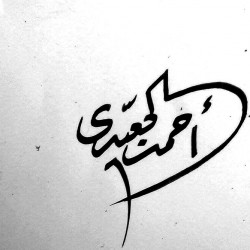 أحمد الجعبّدى